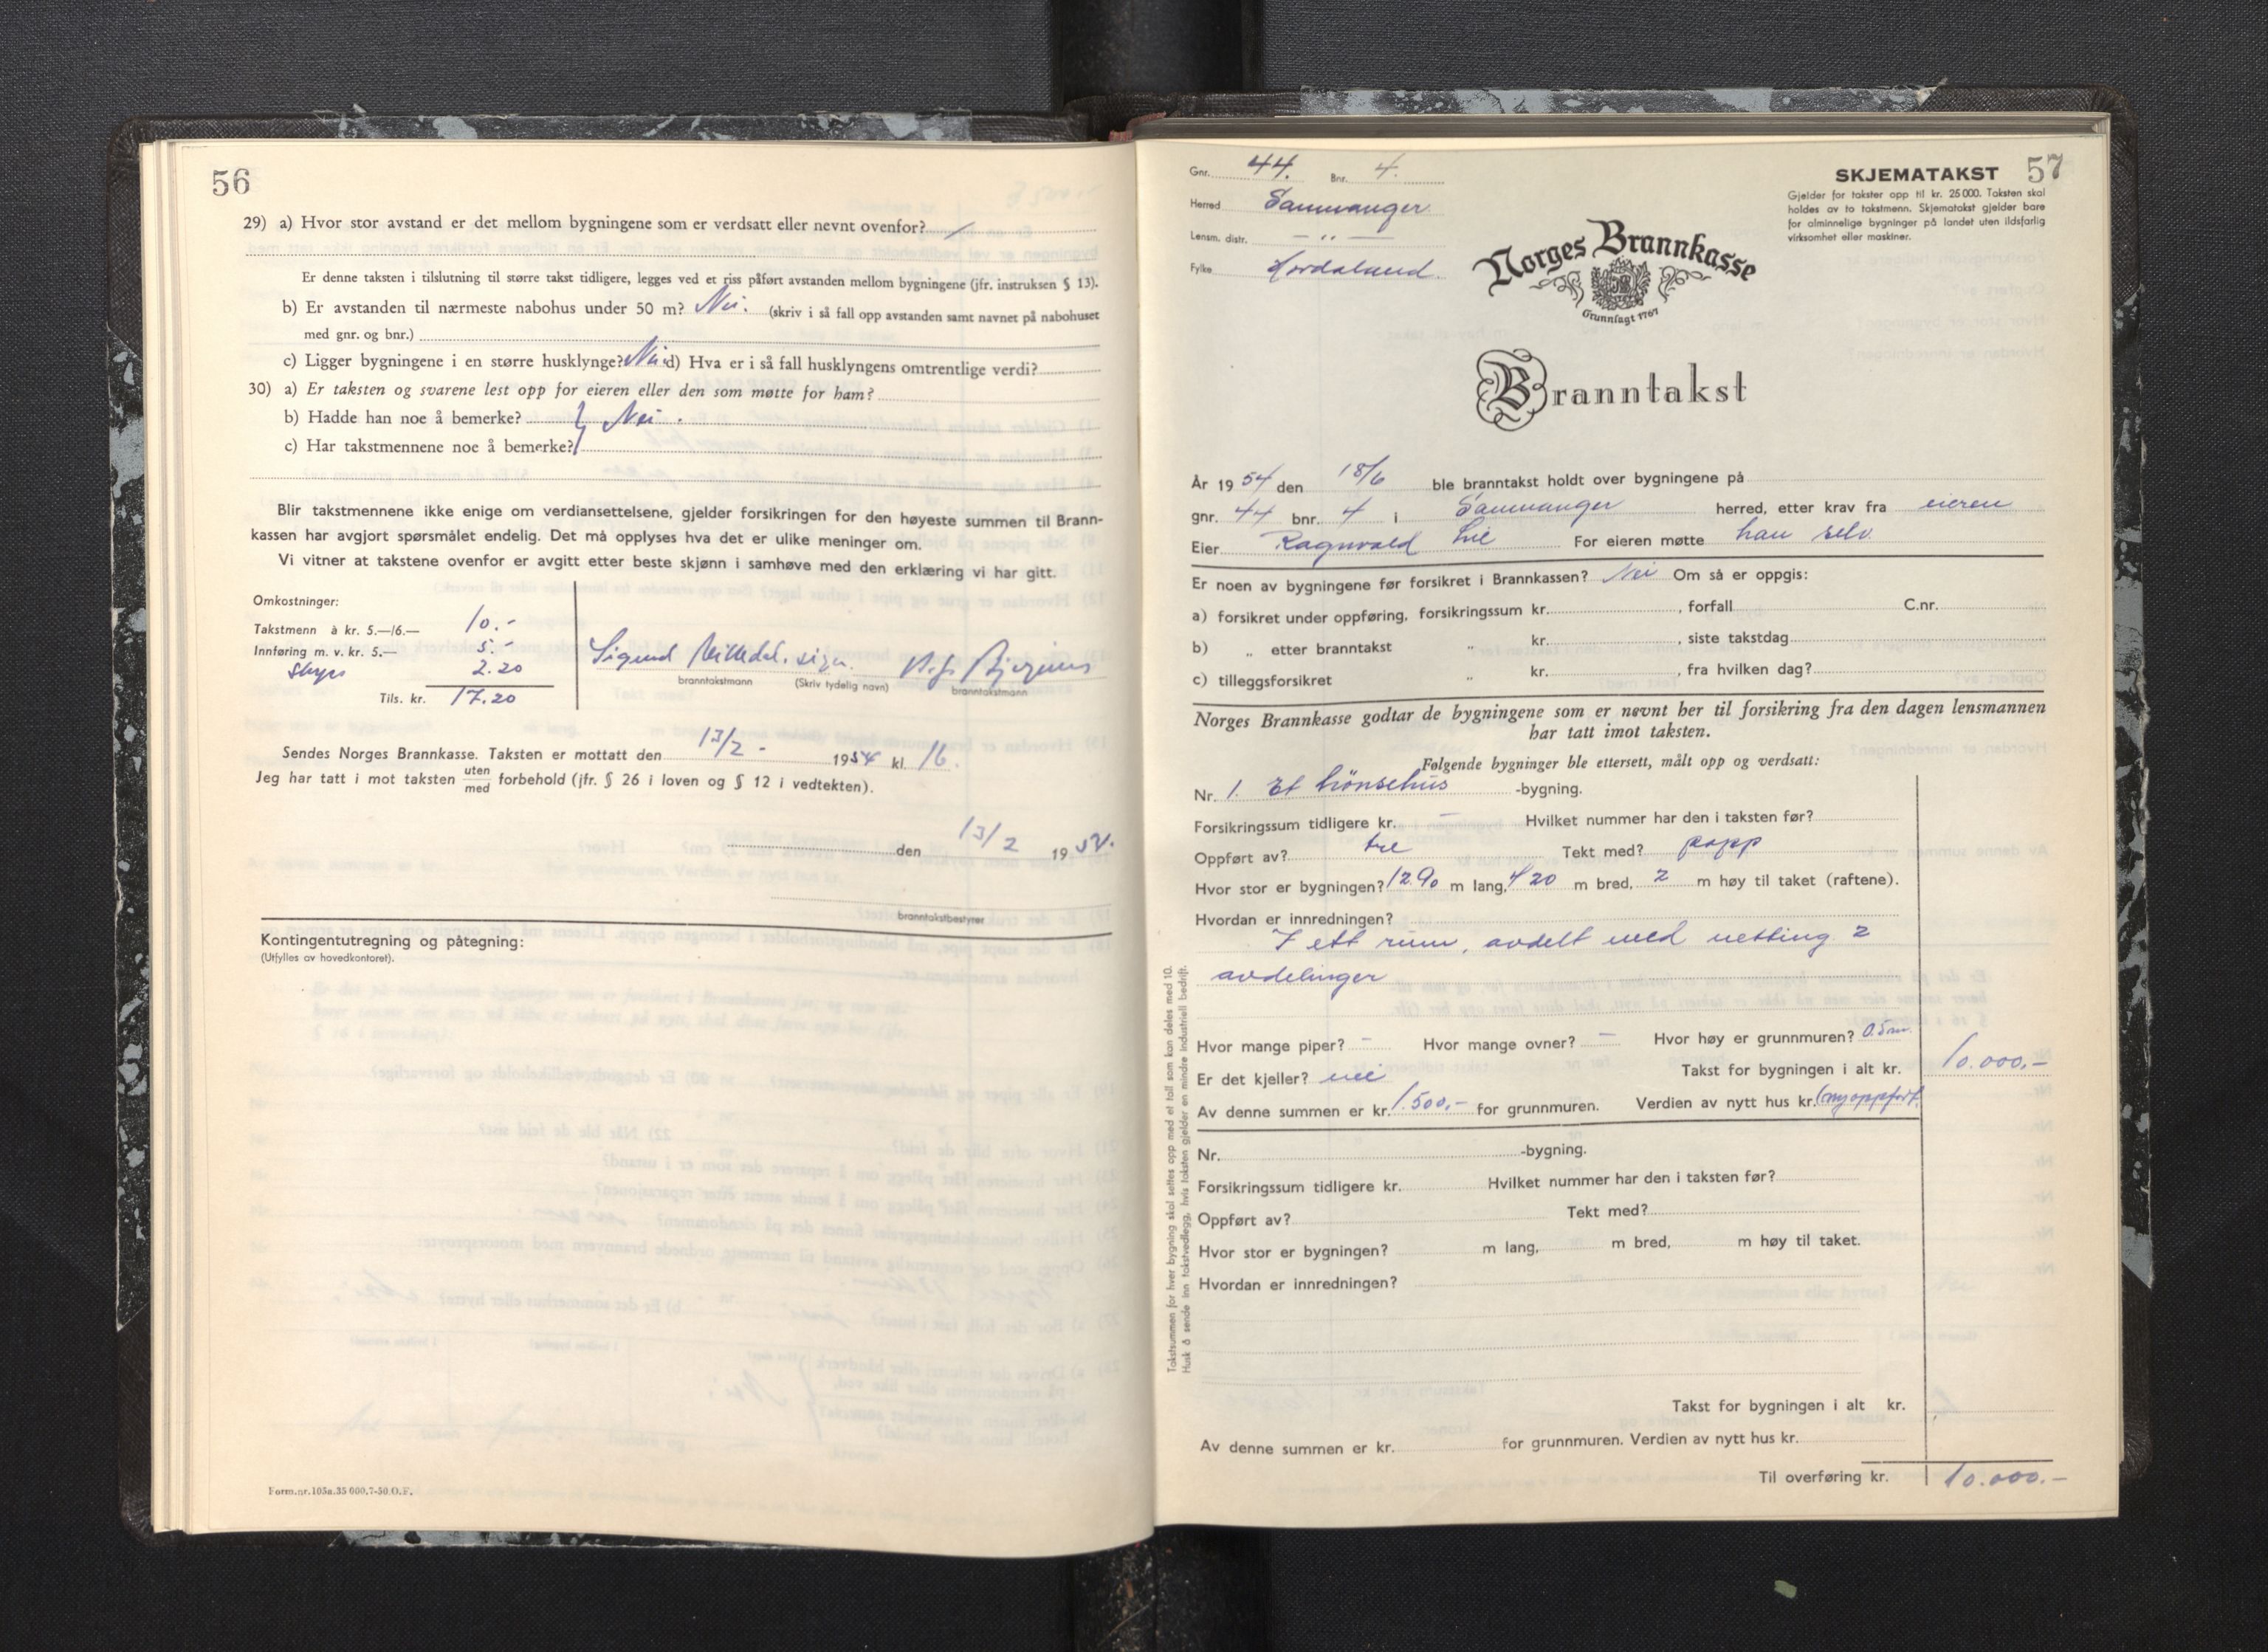 56
29) a) Hvor stor avstand er det mellom bygningene som er verdsatt eller nevnt ovenfor? /
Er denne taksten i tilslutning til større takst tidligere, legges ved et riss påført avstanden mellom bygningene (jfr. instruksen § 13).
b) Er avstanden til nærmeste nabohus under 50 m? Nei. (skriv i så fall opp avstanden samt navnet på nabohuset
med gnr. og bnr.)
c) Ligger bygningene i en større husklynge? Nei d) Hva er i så fall husklyngens omtrentlige verdi?
30) a) Er taksten og svarene lest opp for eieren eller den som møtte for ham?
b) Hadde han noe å bemerke? } Nei.
c) Har takstmennene noe å bemerke?
Blir takstmennene ikke enige om verdiansettelsene, gjelder forsikringen for den høyeste summen til Brann-
kassen har avgjort spørsmålet endelig. Det må opplyses hva det er ulike meninger om.
Vi vitner at takstene ovenfor er avgitt etter beste skjønn i samhøve med den erklæring vi har gitt.
Omkostninger:
Takstmenn à kr. 5.—/6.— 10.-
Innføring m. v. kr. 5.— 5.-
Skyss 2.20
Tils. kr. 17.20
Sigurd sign.
branntakstmann (Skriv tydelig navn) branntakstmann
Sendes Norges Brannkasse. Taksten er mottatt den 13/2 - 1954 kl. 16.
Jeg har tatt i mot taksten uten/med forbehold (jfr. § 26 i loven og § 12 i vedtekten).
den 13/2 1954.
branntakstbestyrer
Kontingentutregning og påtegning:
(Utfylles av hovedkontoret).
Form.nr.105a.35 000.7-50.O.F.
Gnr. 44. Bnr. 4.
Herred Samnanger
Lensm. distr. — „ —
Fylke Hordaland.
SKJEMATAKST 57
Gjelder for takster opp til kr. 25 000. Taksten skal
holdes av to takstmenn. Skjematakst gjelder bare
for alminnelige bygninger på landet uten ildsfarlig
virksomhet eller maskiner.
Norges Brannkasse
Grunnlagt 1767
Branntakst
År 1954 den 18/6 ble branntakst holdt over bygningene på
gnr. 44 bnr. 4 i Samnanger herred, etter krav fra eieren
Eier Ragnvald Lie For eieren møtte han selv.
Er noen av bygningene før forsikret i Brannkassen? Nei Om så er oppgis:
a) forsikret under oppføring, forsikringssum kr. , forfall C.nr.
b) „ etter branntakst „ kr. , siste takstdag
c) tilleggsforsikret „ kr. , fra hvilken dag?
Norges Brannkasse godtar de bygningene som er nevnt her til forsikring fra den dagen lensmannen
har tatt imot taksten.
Følgende bygninger ble ettersett, målt opp og verdsatt:
Nr. 1. Et hönsehus -bygning.
Forsikringssum tidligere kr. — Hvilket nummer har den i taksten før?
Oppført av? tre Tekt med? papp
Hvor stor er bygningen? 12.90 m lang, 4.20 m bred, 2 m høy til taket (raftene).
Hvordan er innredningen?
I ett rum, avdelt med netting 2
avdelinger
Hvor mange piper? - Hvor mange ovner? - Hvor høy er grunnmuren? 0.5 m.
Er det kjeller? nei Takst for bygningen i alt kr. 10.000,-
Av denne summen er kr. 1.500,- for grunnmuren. Verdien av nytt hus kr. (nyoppført.
Nr. -bygning.
Forsikringssum tidligere kr. Hvilket nummer har den i taksten før?
Oppført av? Tekt med?
Hvor stor er bygningen? m lang, m bred, m høy til taket.
Hvordan er innredningen?
Takst for bygningen i alt kr.
Av denne summen er kr. for grunnmuren. Verdien av nytt hus kr.
Til overføring kr. 10.000.-
Takstsummen for hver bygning skal settes opp med et tall som kan deles med 10.
Husk å sende inn takstvedlegg, hvis taksten gjelder en mindre industriell bedrift.